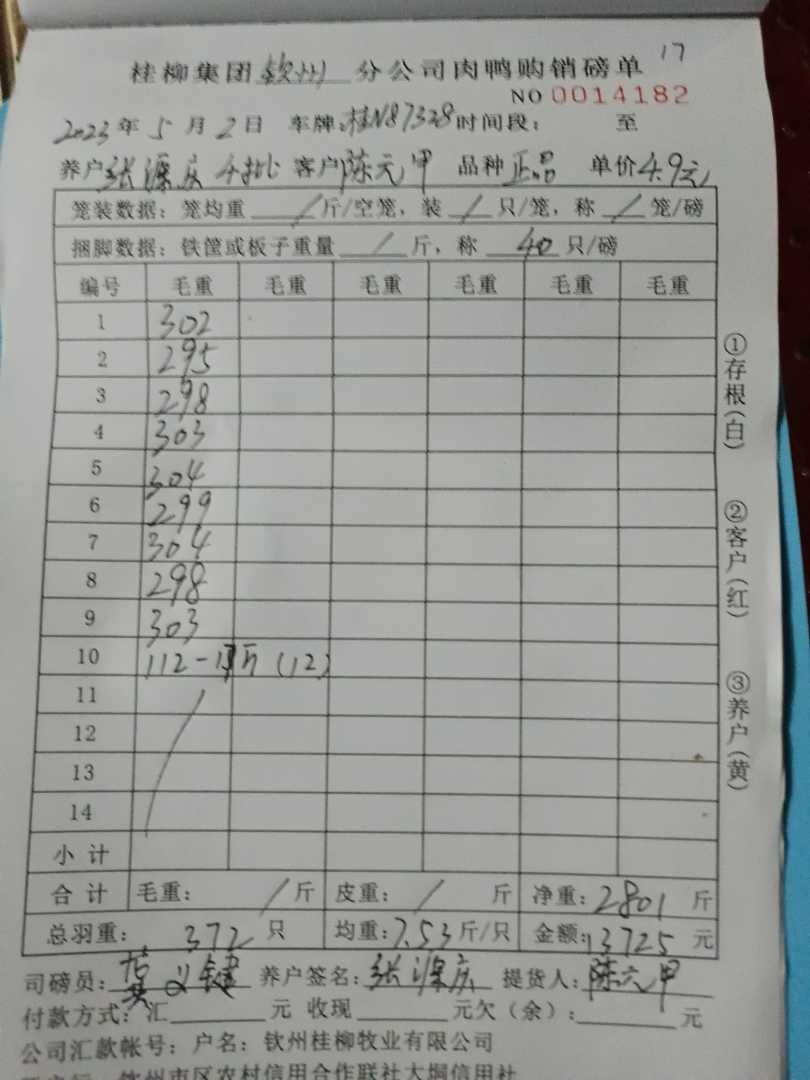 17
桂柳集团钦州分公司肉鸭购销磅单
NO 0014182
2023年5月2日 车牌:桂N87328时间段: 至
养户张源庆4批 客户陈元甲 品种正品 单价4.9元
笼装数据: 笼均重 / 斤/空笼, 装 / 只/笼, 称 / 笼/磅
捆脚数据: 铁筐或板子重量 / 斤, 称 40 只/磅
编号 毛重 毛重 毛重 毛重 毛重 毛重
1 302
2 295
3 298
4 303
5 304
6 299
7 304
8 298
9 303
10 112- 斤 (12)
11
12
13
14
小计
合计 毛重: / 斤 皮重: / 斤 净重: 2801 斤
总羽重: 372 只 均重: 7.53斤/只 金额: 13725 元
司磅员: 养户签名: 张源庆 提货人: 陈元甲
付款方式: 汇 元 收现 元欠(余): 元
公司汇款帐号: 户名: 钦州桂柳牧业有限公司
钦州市区农村信用合作联社大垌信用社
①存根(白)
②客户(红)
③养户(黄)